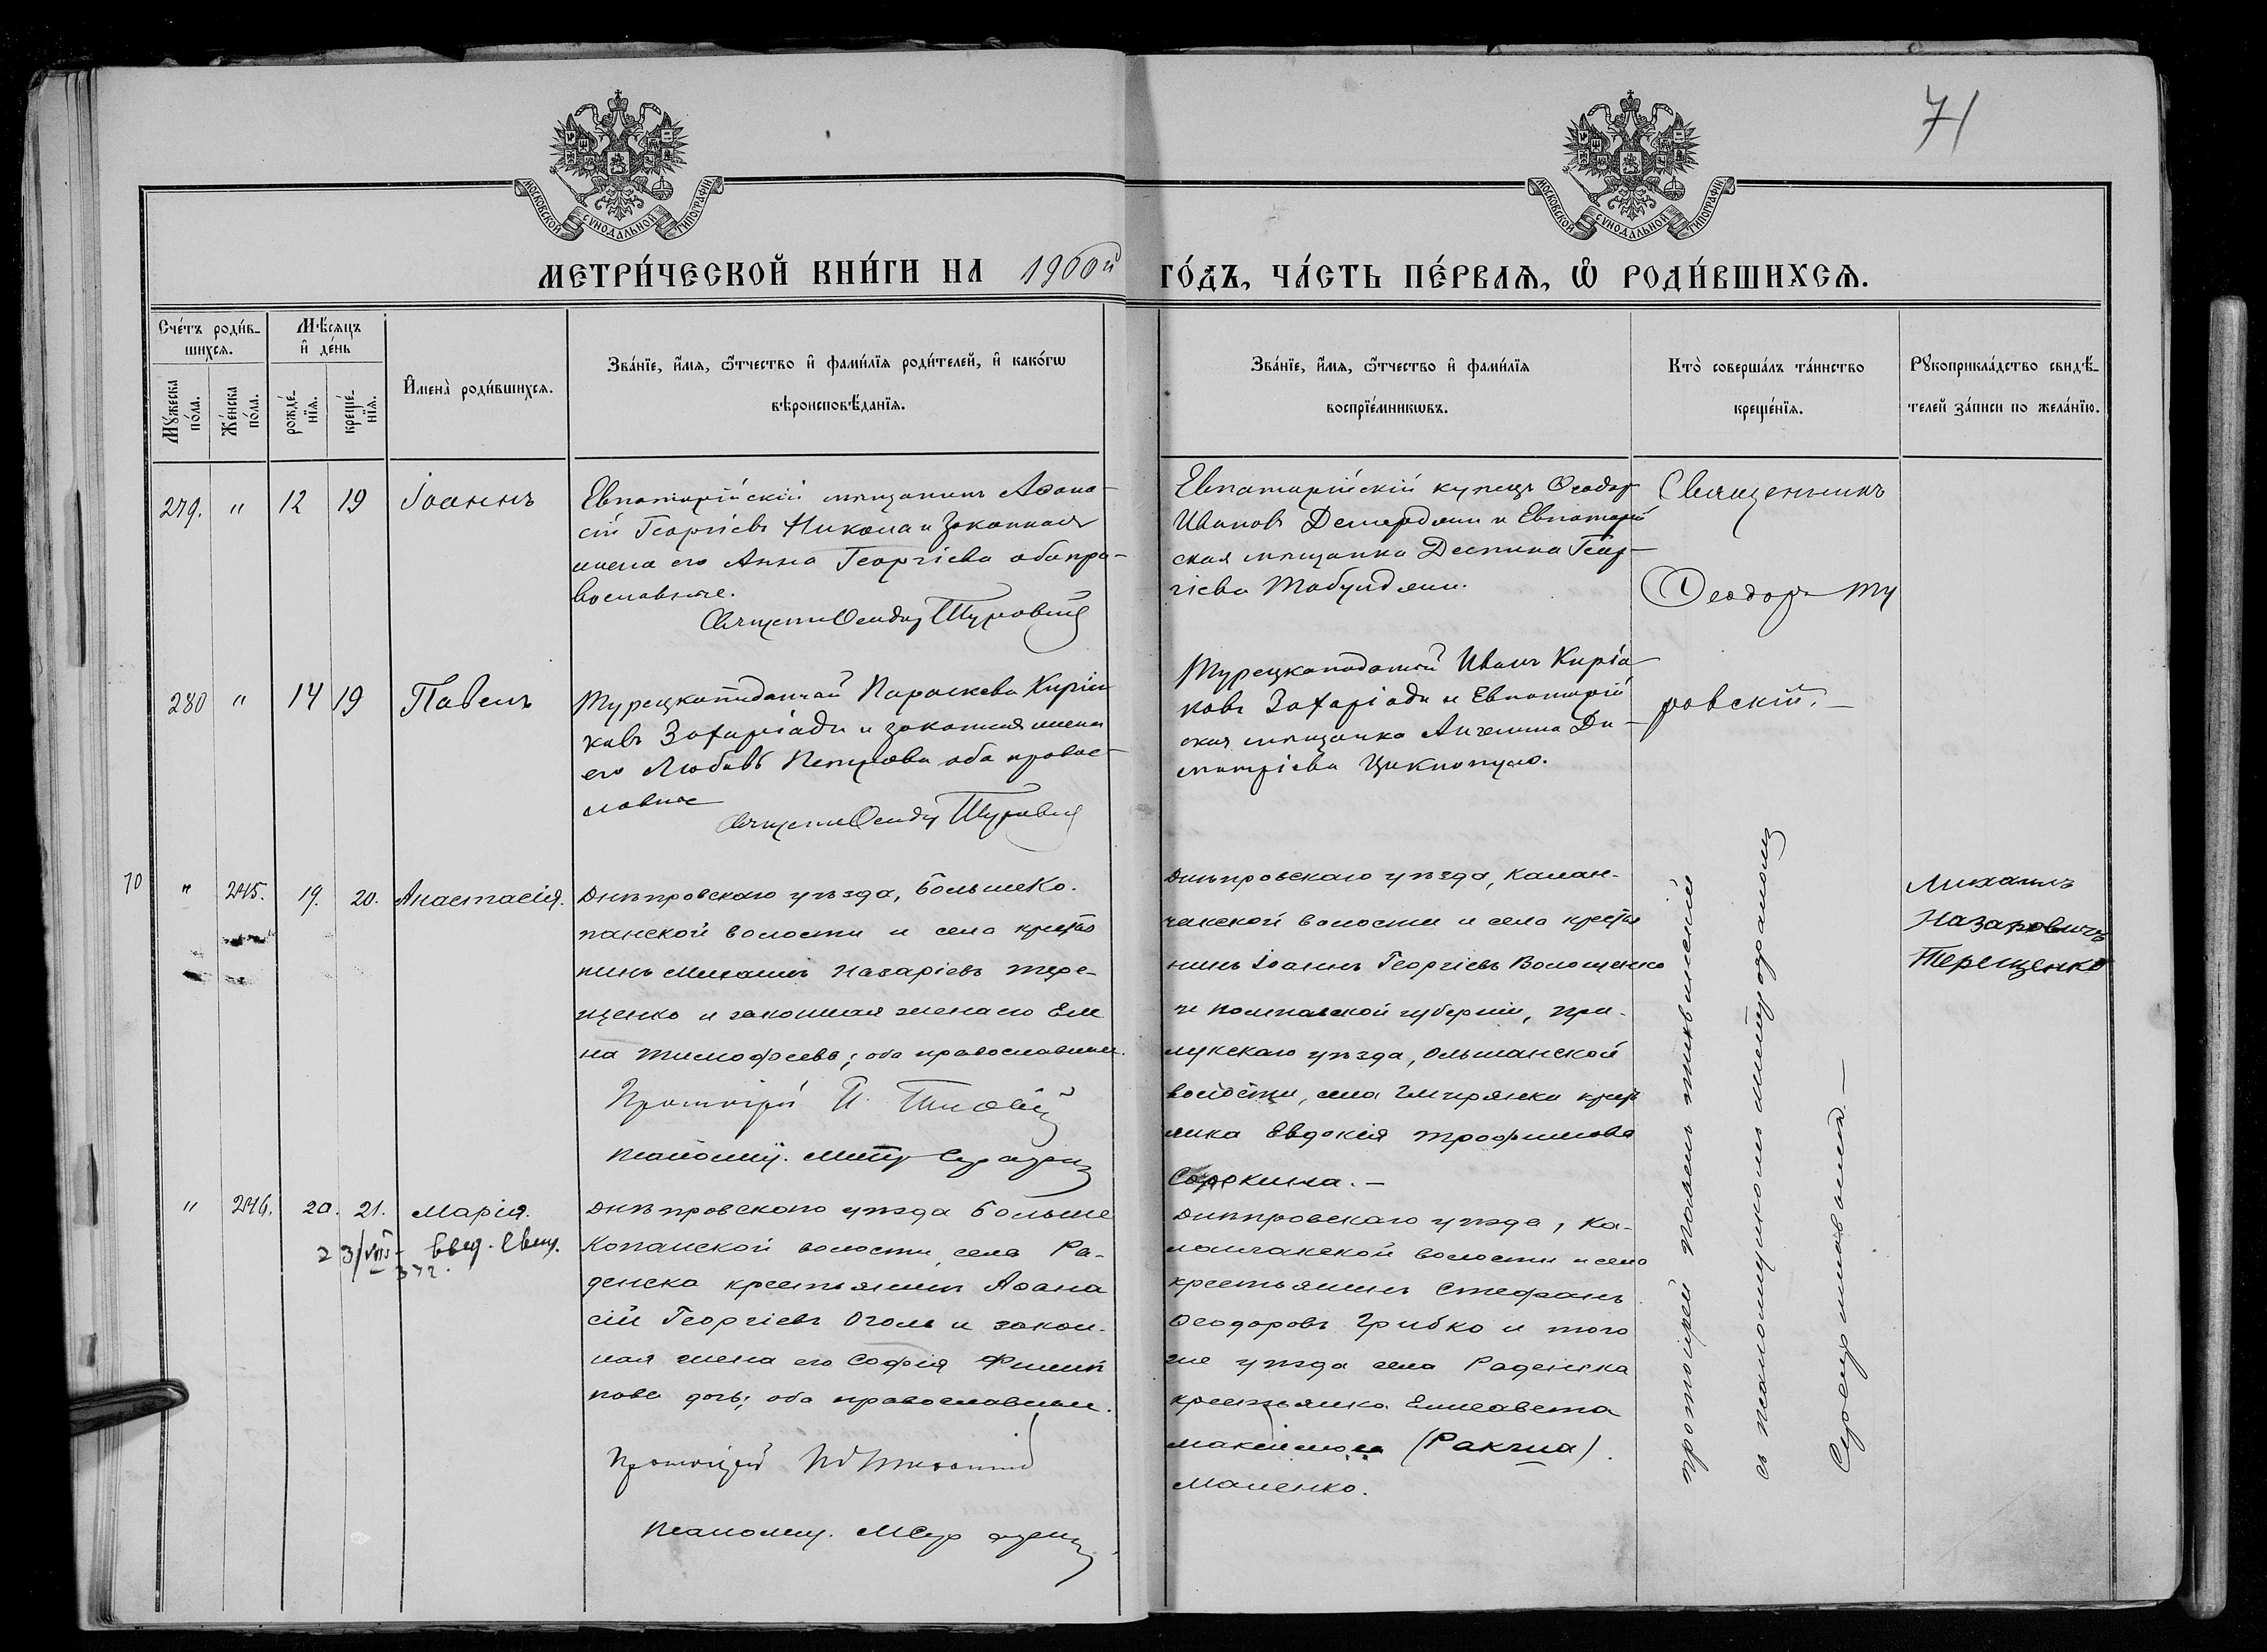 71
МОСКОВСКОЙ СѴНОДАЛЬНОЙ ТИПОГРАФІИ
МОСКОВСКОЙ СѴНОДАЛЬНОЙ ТИПОГРАФІИ
МЕТРИ́ЧЕСКОЙ КНИ́ГИ НА 1900й ГО́ДЪ, ЧА́СТЬ ПЕ́РВАѦ, Ѡ РОДИ́ВШИХСѦ.
Сче́тъ роди́в-
шихсѧ.
Мꙋ́жеска
по́ла.
Же́нска
по́ла.
Мѣ́сѧцъ
и҆ де́нь
рожде́-
нїѧ.
креще́-
нїѧ.
И҆мена̀ роди́вшихсѧ.
Зва́нїе, и҆́мѧ, ѻ҆́тчество и҆ фами́лїѧ роди́телей, и҆ како́гѡ
вѣроисповѣ́данїѧ.
Зва́нїе, и҆́мѧ, ѻ҆́тчество и҆ фами́лїѧ
воспрїе́мникѡвъ.
Кто̀ соверша́лъ та́инство
креще́нїѧ.
Рꙋкоприкла́дство свидѣ́-
телей за́писи по жела́нїю.
279. " 12 19 Іоаннъ
Евпаторійскій мѣщанинъ Аѳана-
сій Георгіевъ Никола и законная
жена его Анна Георгіева оба пра-
вославные.
Евпаторійскій купецъ Ѳеодоръ
Ивановъ и Евпаторій
ская мѣщанка Деспина Геор-
гіева
Священникъ
Ѳеодоръ Ту
ровскій.
280 " 14 19 Павелъ
Турецкоподанный Параскева Киріа
ковъ Захаріади и законная жена
его Любовь Петрова оба правос-
лавные
Турецкоподаный Иванъ Киріа
ковъ Захаріади и Евпаторій
ская мѣщанка Ангелина Ди-
митріева
70 " 245. 19. 20. Анастасія.
Днѣпровскаго уѣзда, Больше Ко-
панской волости и села кресть
нинъ Михаилъ Назаріевъ Тере-
щенко и законная жена его Еле
на Тимофеева; оба православные.
Протоіерей П.
Псаломщ.
Днѣпровскаго уѣзда, Калан-
чакской волости и села крестья
нинъ Іоаннъ Георгіевъ Волощенко
и Полтавской губерніи, При-
лукскаго уѣзда, Ольшанской
волости, села крест
янка Евдокія Трофимова
Сорокина. —
Михаилъ
Назаровичъ
Терещенко
" 246. 20. 21. Марія.
23/VIII - выд. Свид.
372.
Днѣпровскаго уѣзда Больше
Копанской волости, села Ра-
денска крестьянинъ Аѳана
сій Георгіевъ Оголь и закон-
ная жена его Софія Филип
пова дочь; оба православные.
Протоіерей
Псаломщ.
Днѣпровскаго уѣзда, Ка-
ланчакской волости и села
крестьянинъ Стефанъ
Ѳеодоровъ Грибко и того
же уѣзда села Раденска
крестьянка Елисавета
Максимова (Ракчиа).
Маненко.
протоіерей Павелъ
съ псаломщикомъ Митрофаномъ